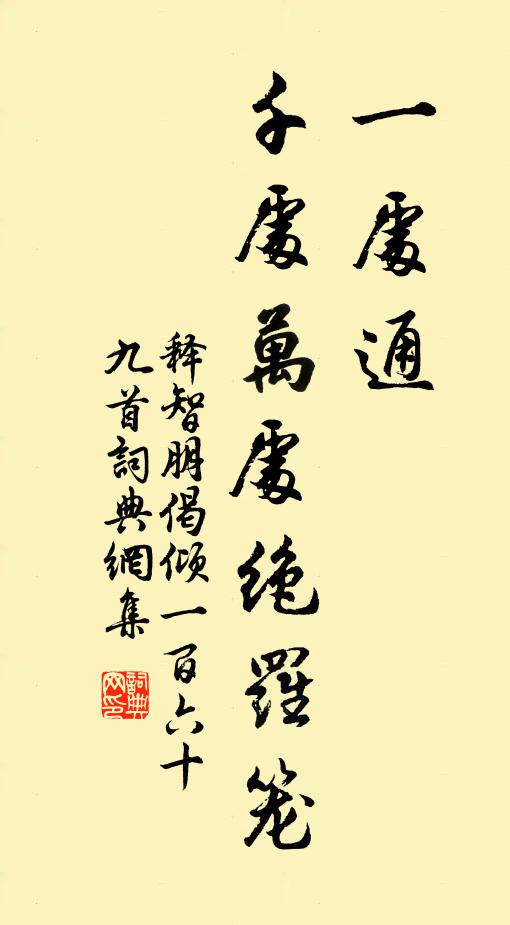 一處通
千處萬處絶羅笼
释智朋偈傾一百六十
九首詞典網集
詞典網印